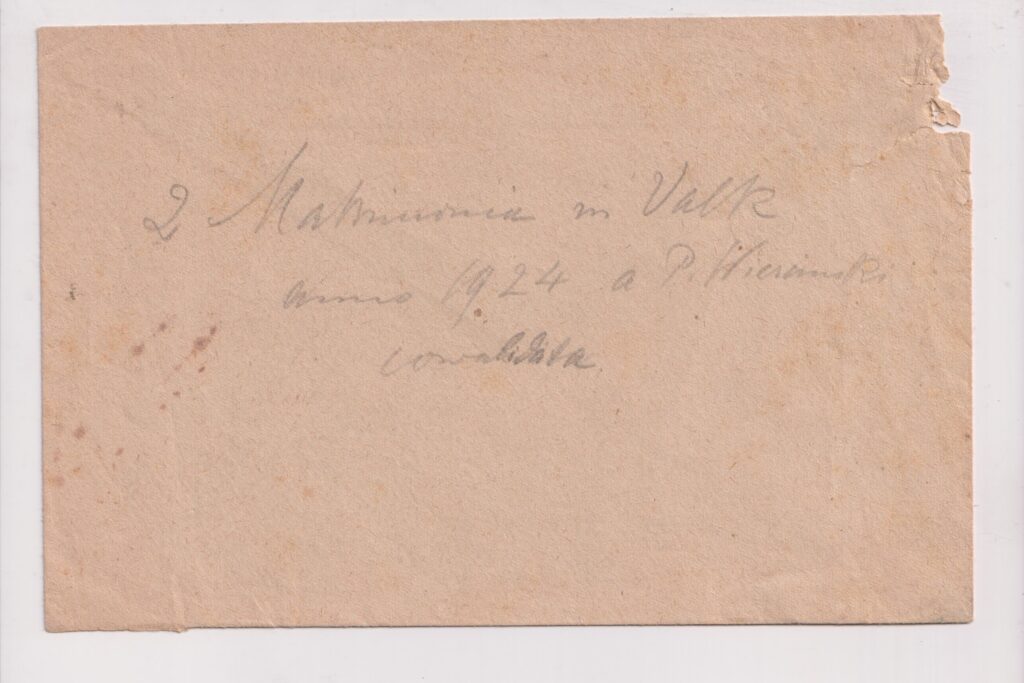 2 Matrimonia in Valk
anno 1924 a P. Wiercinski
convalidata.